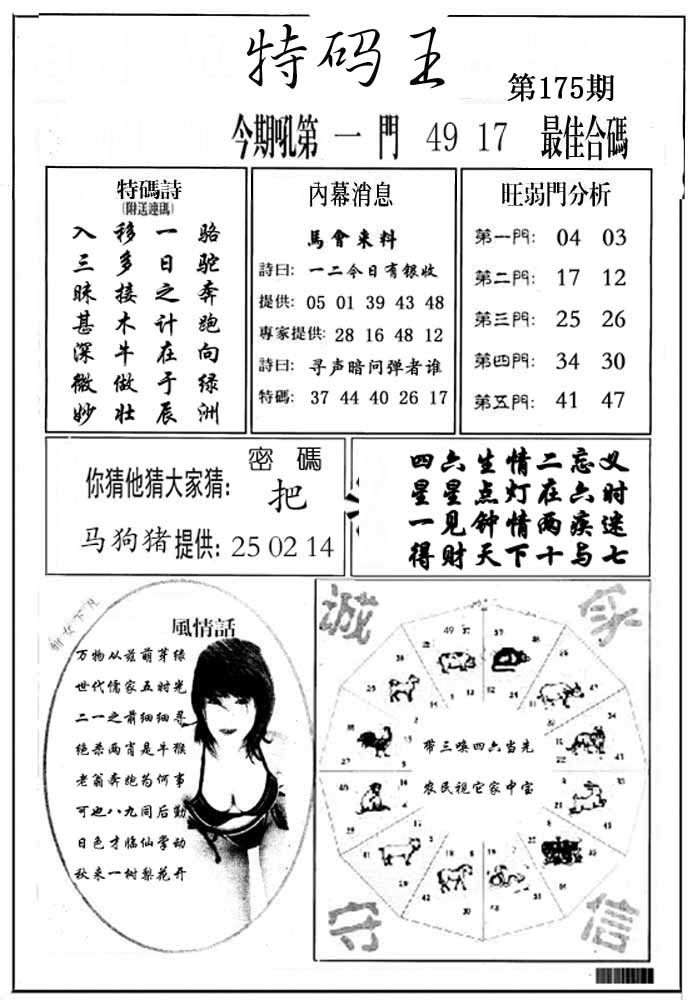 特码王
第175期
今期吼第一門 49 17 最佳合碼
特碼詩
(附送連碼)
骆驼奔跑向绿洲
一日之计在于辰
移多接木牛做壮
入三昧甚深微妙
內幕消息
馬會来料
詩曰: 一二今日有银收
提供: 05 01 39 43 48
專家提供: 28 16 48 12
詩曰: 寻声暗问弹者谁
特碼: 37 44 40 26 17
旺弱門分析
第一門: 04 03
第二門: 17 12
第三門: 25 26
第四門: 34 30
第五門: 41 47
密碼
你猜他猜大家猜: 把
马狗猪提供: 25 02 14
四六生情二忘义
星星点灯在六时
一见钟情两疾迷
得财天下十与七
風情話
万物从兹萌芽绿
世代儒家五时光
二一之前细细寻
绝杀两肖是牛猴
老翁奔跑为何事
可迎八九同后勤
日色才临仙掌动
秋来一树梨花开
诚
守
信
带三唤四六当先
农民视它家中宝